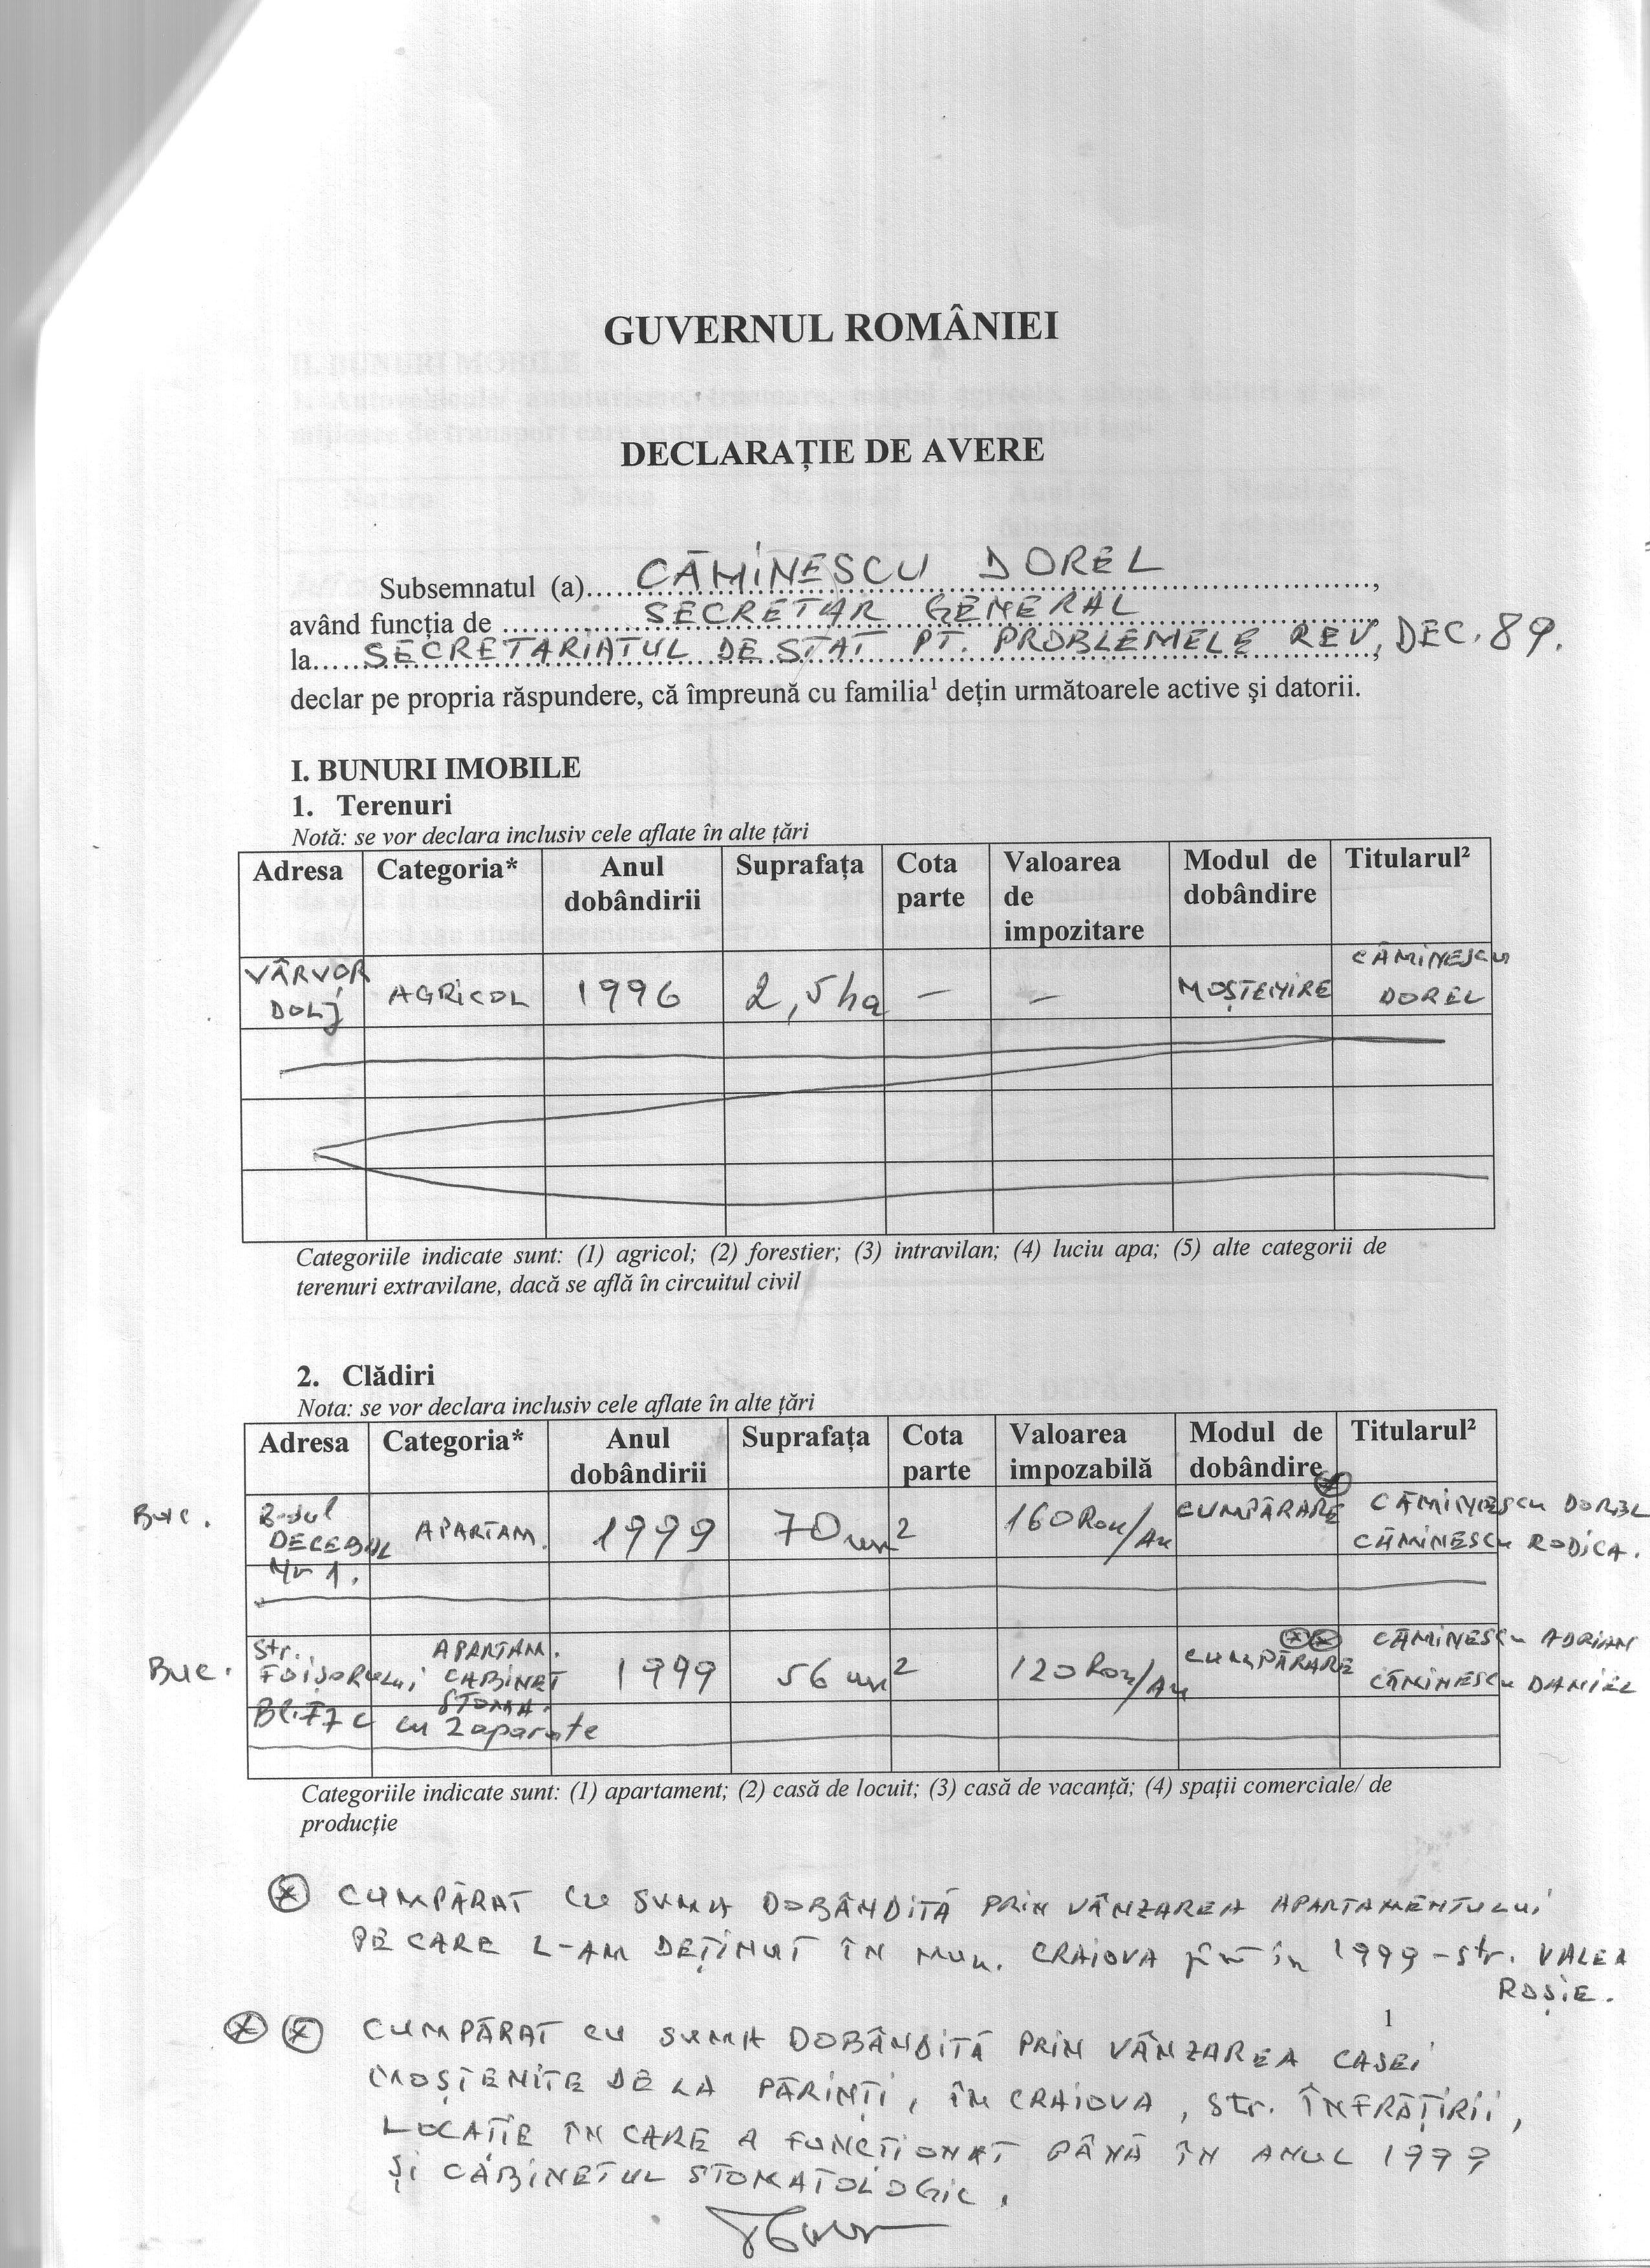 GUVERNUL ROMÂNIEI
DECLARAȚIE DE AVERE
Subsemnatul (a)..... CĂMINESCU DOREL ..........,
având funcția de .......... SECRETAR GENERAL ..........
la..... SECRETARIATUL DE STAT PT. PROBLEMELE REV, DEC. 89.
declar pe propria răspundere, că împreună cu familia¹ dețin următoarele active și datorii.
I. BUNURI IMOBILE
1. Terenuri
Notă: se vor declara inclusiv cele aflate în alte țări
Adresa Categoria* Anul dobândirii Suprafața Cota parte Valoarea de impozitare Modul de dobândire Titularul²
VÂRVOR DOLJ AGRICOL 1996 2,5 ha – – MOȘTENIRE CĂMINESCU DOREL
Categoriile indicate sunt: (1) agricol; (2) forestier; (3) intravilan; (4) luciu apa; (5) alte categorii de
terenuri extravilane, dacă se află în circuitul civil
2. Clădiri
Nota: se vor declara inclusiv cele aflate în alte țări
Adresa Categoria* Anul dobândirii Suprafața Cota parte Valoarea impozabilă Modul de dobândire Titularul²
Buc. B-dul DECEBAL Nr 1. APARTAM. 1999 70 m² 160 Ron/An CUMPĂRARE * CĂMINESCU DOREL CĂMINESCU RODICA.
Buc. Str. FOIȘORULUI Bl. F7C APARTAM. CABINET STOMA. cu 2 aparate 1999 56 m² 120 Ron/An CUMPĂRARE ** CĂMINESCU ADRIAN CĂMINESCU DANIEL
Categoriile indicate sunt: (1) apartament; (2) casă de locuit; (3) casă de vacanță; (4) spații comerciale/ de
producție
* CUMPĂRAT CU SUMA DOBÂNDITĂ PRIN VÂNZAREA APARTAMENTULUI
PE CARE L-AM DEȚINUT ÎN MUN. CRAIOVA în 1999 – str. VALEA
ROȘIE.
1
** CUMPĂRAT CU SUMA DOBÂNDITĂ PRIN VÂNZAREA CASEI
MOȘTENITE DE LA PĂRINȚI, ÎN CRAIOVA, Str. ÎNFRĂȚIRII,
LOCAȚIE ÎN CARE A FUNCȚIONAT PÂNĂ ÎN ANUL 1999
ȘI CABINETUL STOMATOLOGIC.